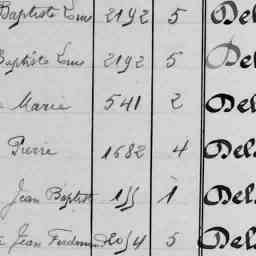 Baptiste 2192 5 Del
Baptiste 2192 5 Del
Marie 541 2 Del
Pierre 1682 4 Del
Jean Baptist 155 1 Del
Jean 5 Del